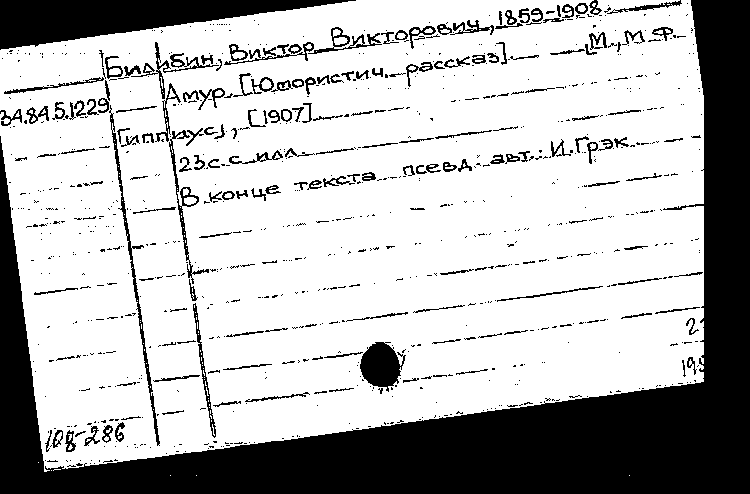 Билибин, Виктор Викторович, 1859-1908.
34.84.5.1229
Амур. [Юмористич. рассказ]. — М., М.Ф.
Гиппиус, [1907].
23с. с илл.
В конце текста псевд. авт.: И.Грэк
108-286